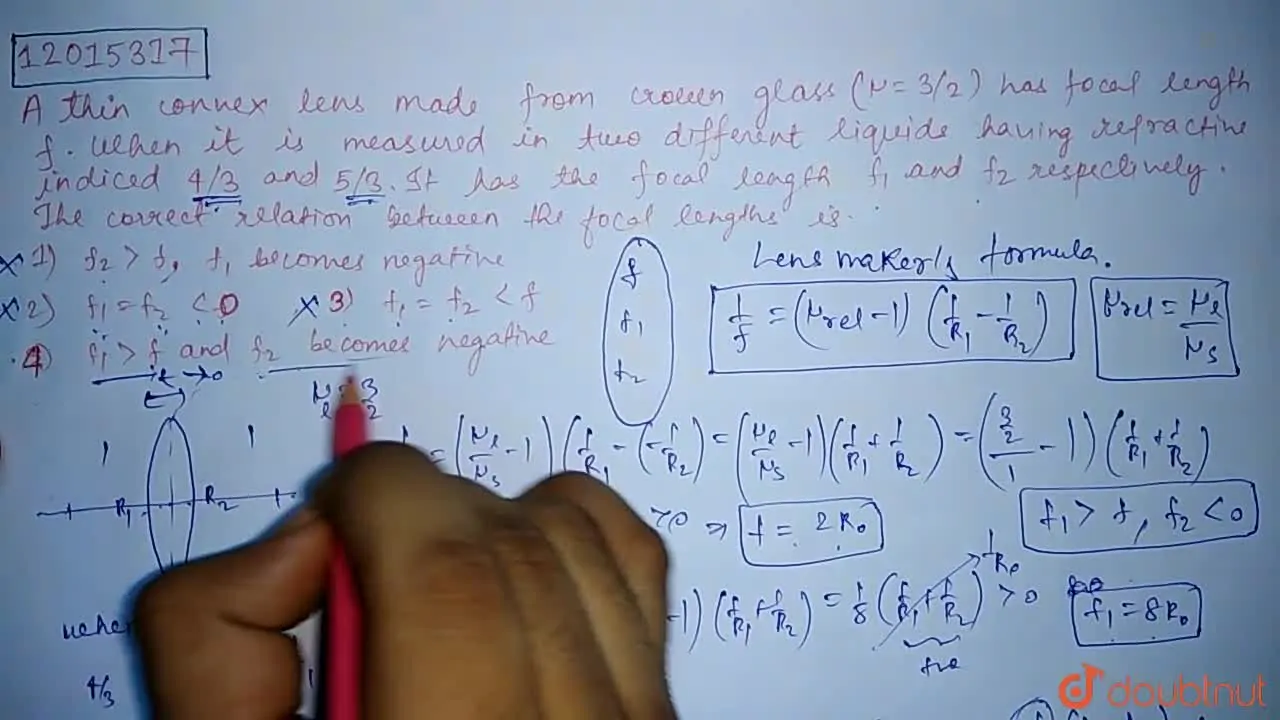 12015317
A thin convex lens made from crown glass (μ = 3/2) has focal length
f. When it is measured in two different liquids having refractive
indiced 4/3 and 5/3. It has the focal length f₁ and f₂ respectively.
The correct relation between the focal lengths is.
×1) f₂ > f, f₁ becomes negative
×2) f₁ = f₂ < 0 ×3) f₁ = f₂ < f
4) f₁ > f and f₂ becomes negative
f
f₁
f₂
Lens maker's formula.
1/f = (μrel - 1) (1/R₁ - 1/R₂)
μrel = μl/μs
1 1
R₁ R₂
= (μl/μs - 1) (1/R₁ - (-1/R₂)) = (μl/μs - 1) (1/R₁ + 1/R₂) = ((3/2)/1 - 1) (1/R₁ + 1/R₂)
>0 ⇒ f = 2R₀
f₁ > f, f₂ < 0
-1) (1/R₁ + 1/R₂) = 1/8 (1/R₁ + 1/R₂) > 0
1/R₀
+ve
f₁ = 8R₀
4/3
doubtnut